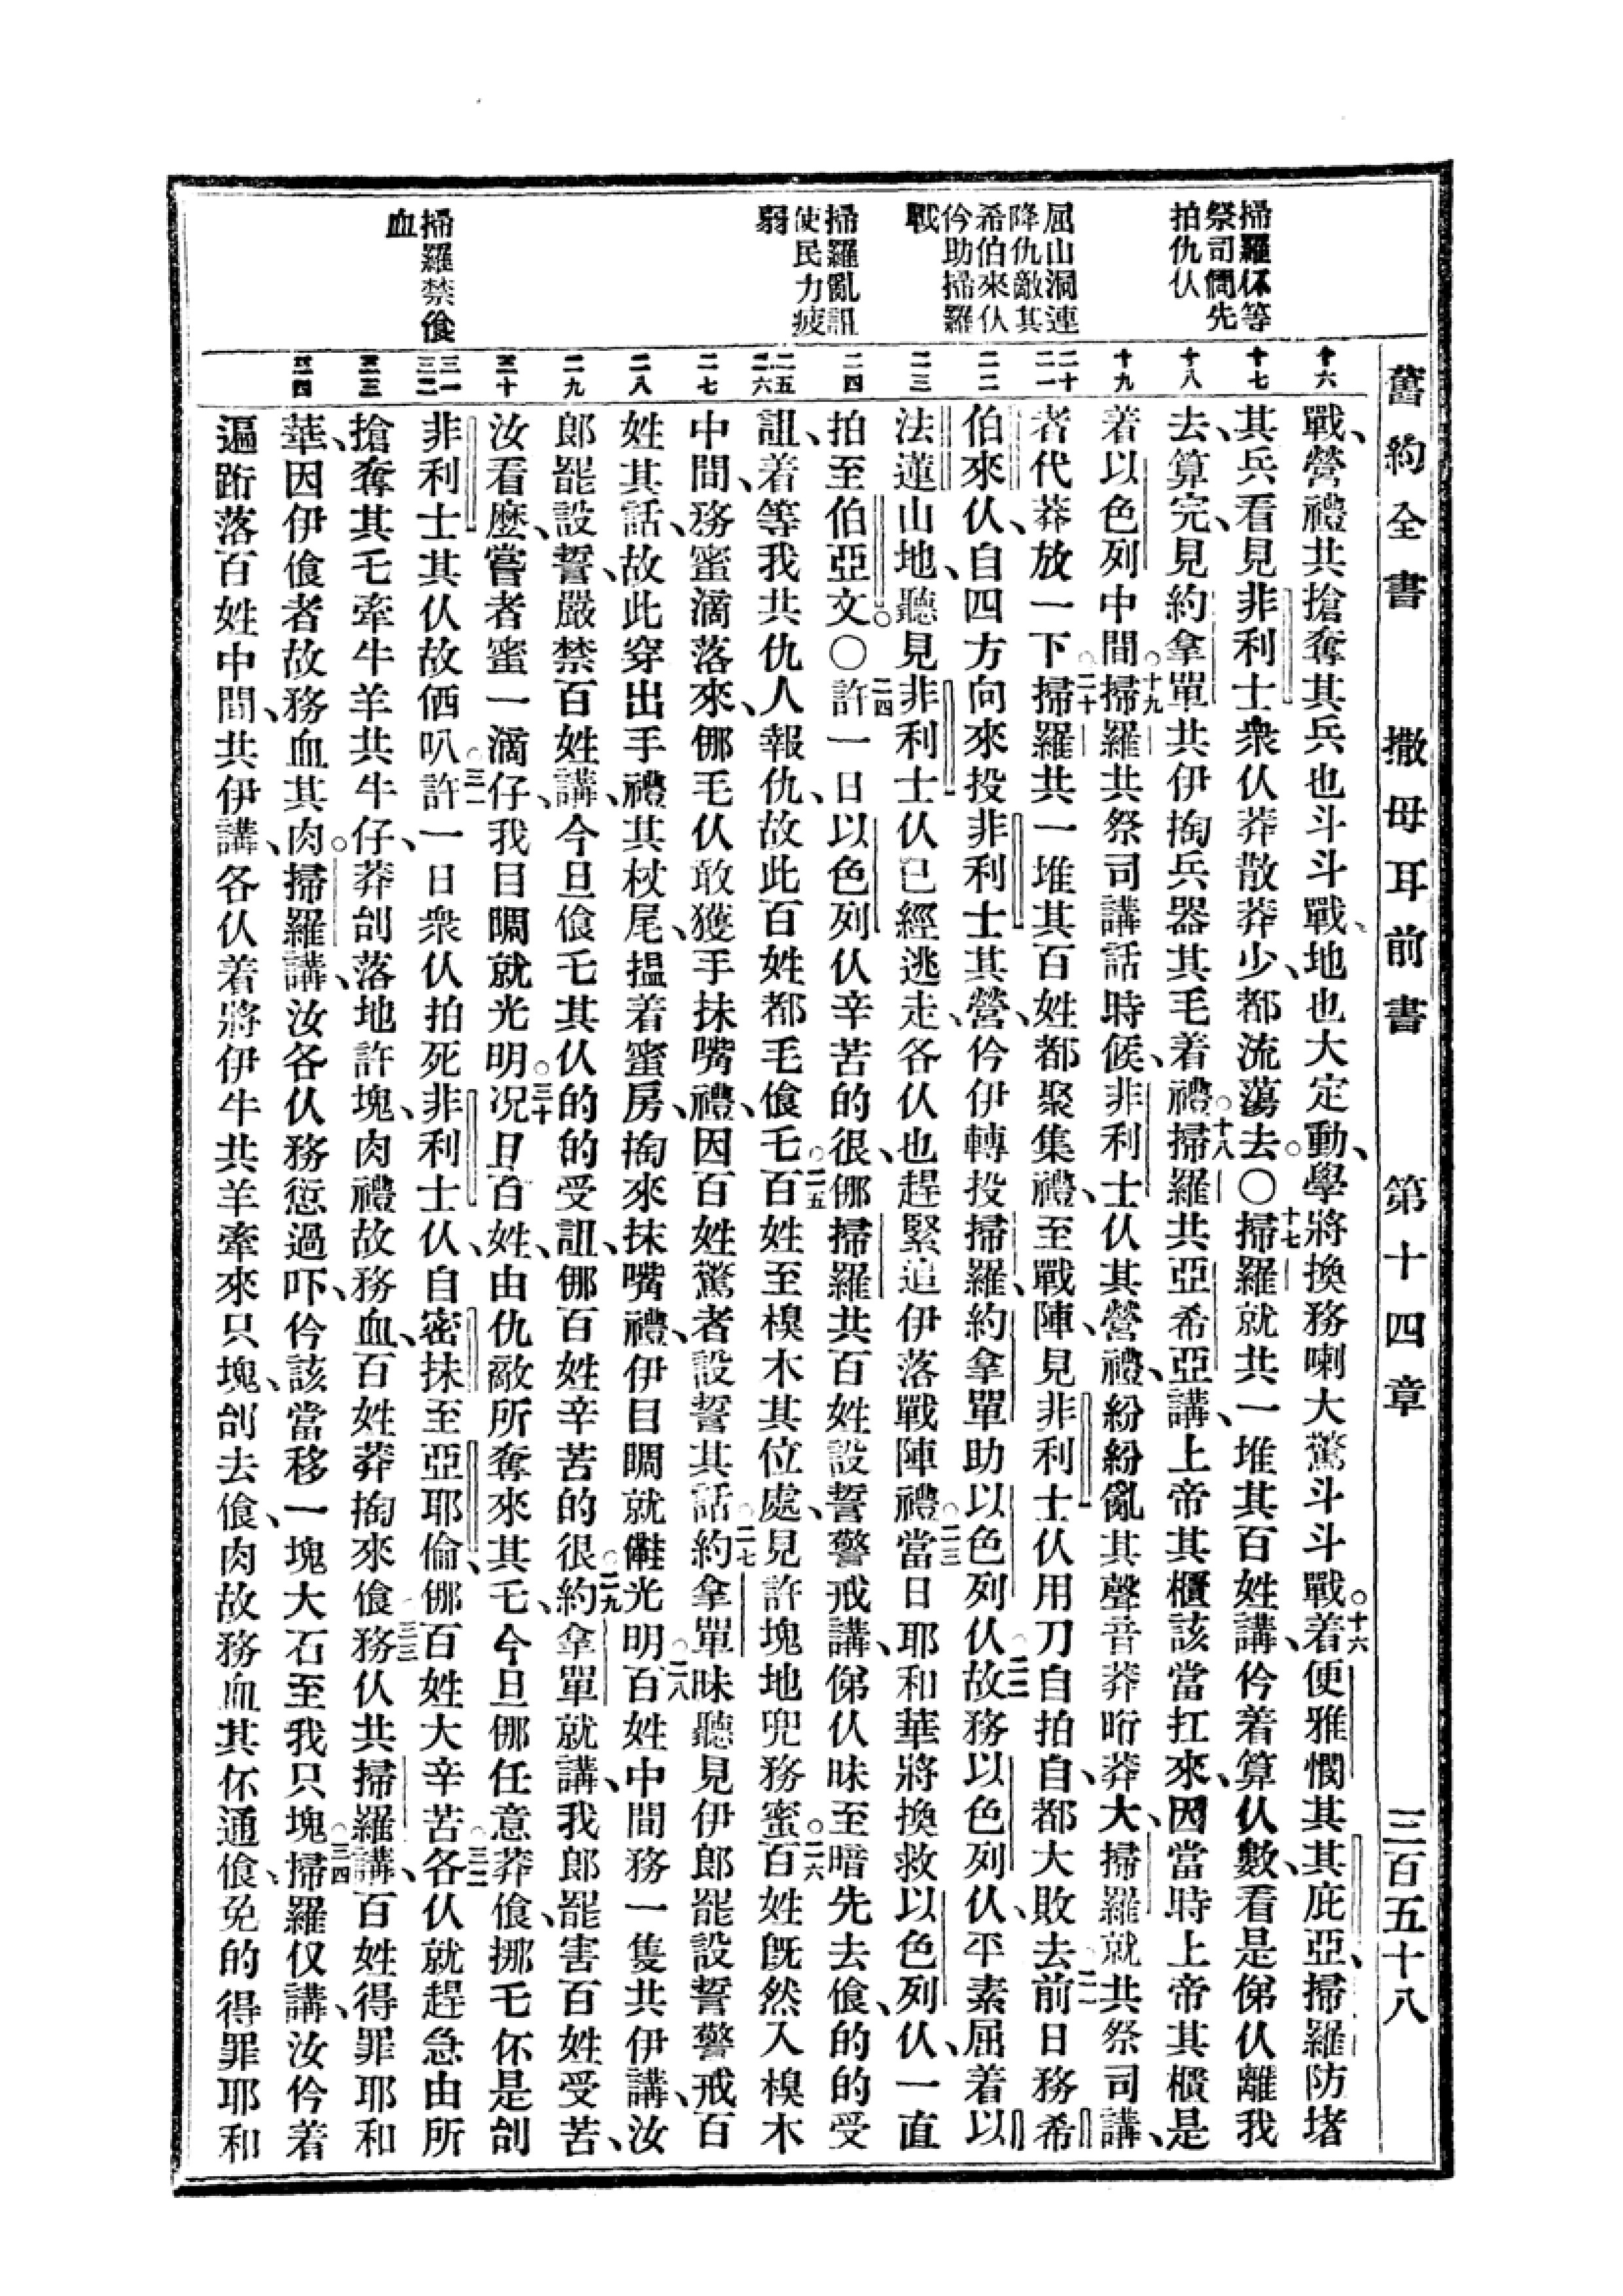 舊約全書 撒母耳前書 第十四章 三百五十八
掃羅伓等
祭司問先
拍仇仈
屈山洞連
降仇敵其
希伯來仈
仱助掃羅
戰
掃羅亂詛
使民力疲
弱
掃羅禁飡
血
十六
十七
十八
十九
二十
二一
二二
二三
二四
二五
二六
二七
二八
二九
三十
三一
三二
三三
三四
戰、營禮共搶奪其兵也斗斗戰、地也大定動、學將換務喇大驚斗斗戰。十六着便雅憫其其庇亞、掃羅防堵
其兵看見非利士衆仈莽散莽少、都流蕩去。〇十七掃羅就共一堆其百姓講、仱着算仈數、看是俤仈離我
去、算完、見約拿單共伊掏兵器其毛着禮。十八掃羅共亞希亞講、上帝其櫃該當扛來、因當時上帝其櫃是
着以色列中間。十九掃羅共祭司講話時候、非利士仈其營禮、紛紛亂其聲音莽哘莽大、掃羅就共祭司講、
者代莽放一下。二十掃羅共一堆其百姓都聚集禮、至戰陣、見非利士仈用刀自拍自、都大敗去。二一前日務希
伯來仈、自四方向來投非利士其營、仱伊轉投掃羅、約拿單助以色列仈。二二故務以色列仈、平素屈着以
法蓮山地、聽見非利士仈已經逃走、各仈也趕緊追伊落戰陣禮。二三當日耶和華將換救以色列仈、一直
拍至伯亞文。〇二四許一日以色列仈辛苦的很、㑚掃羅共百姓設誓警戒講、俤仈昧至暗先去飡、的的受
詛、着等我共仇人報仇、故此百姓都毛飡乇。二五百姓至樹木其位處、見許塊地兜務蜜。二六百姓旣然入樹木
中間、務蜜滴落來、㑚毛仈敢獲手抹嘴禮、因百姓驚者設誓其話。二七約拿單昧聽見伊郎罷設誓警戒百
姓其話、故此穿出手禮其杖尾、揾着蜜房、掏來抹嘴禮、伊目睭就儺光明。二八百姓中間務一隻共伊講、汝
郎罷設誓、嚴禁百姓講、今旦飡乇其仈的的受詛、㑚百姓辛苦的很。二九約拿單就講、我郎罷害百姓受苦、
汝看麼、嘗者蜜一滴仔、我目睭就光明。三十况且百姓、由仇敵所奪來其乇、今旦㑚任意莽飡、挪乇伓是刣
非利士其仈故㑚叭。三一許一日衆仈拍死非利士仈、自密抹至亞耶倫、㑚百姓大辛苦。三二各仈就趕急由所
搶奪其乇牽牛羊共牛仔、莽刣落地許塊、肉禮故務血、百姓莽掏來飡。三三務仈共掃羅講、百姓得罪耶和
華、因伊飡者故務血其肉。掃羅講、汝各仈務愆過吓、仱該當移一塊大石至我只塊。三四掃羅仅講、汝仱着
遍跉落百姓中間、共伊講、各仈着將伊牛共羊牽來只塊、刣去飡、肉故務血其伓通飡、免的得罪耶和